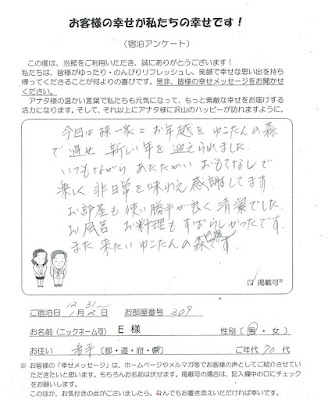 お客様の幸せが私たちの幸せです！
（宿泊アンケート）
この度は、当館をご利用いただき、誠にありがとうございます！
私たちは、皆様がゆったり・のんびりリフレッシュし、笑顔で幸せな思い出を持ち
帰ってくださることが何よりの喜びです。是非、皆様の幸せメッセージをお聞かせ
ください。
アナタ様の温かい言葉で私たちも元気になって、もっと素敵な幸せをお届けする
活力になります。そして、それ以上にアナタ様に沢山のハッピーが訪れますように。
今回は孫一家とお年越をゆこたんの森
で過せ 新しい年を迎えられました。
いつもながら あたたかい おもてなしで
楽しく 非日常を味わえ感謝してます。
お部屋も使い勝手が良く清潔でした。
お風呂 お料理もすばらしかったです。
また来たいゆこたんの森です。
掲載可
ご宿泊日 12月31～1月2日 お部屋番号 309
お名前（ニックネーム可） E様 性別（男・女）
お住い 岩手（都・道・府・県） ご年代 70代
※ お客様の「幸せメッセージ」は、ホームページやメルマガ等でお客様の声としてご紹介させて
いただきたいと思います。もちろんお名前は伏せます。掲載可の場合は、記入欄中の口にチェック
をお願いします。
このほか、お気付きの点がございましたら、なんでもお書き添えいただければ幸いです。